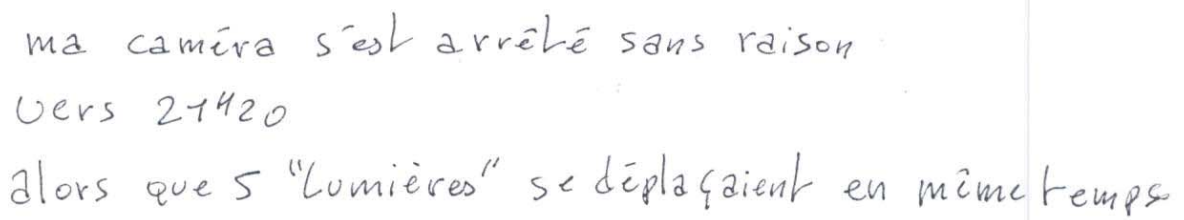 ma caméra s'est arrêté sans raison
vers 21H20
alors que 5 "Lumières" se déplaçaient en même temps